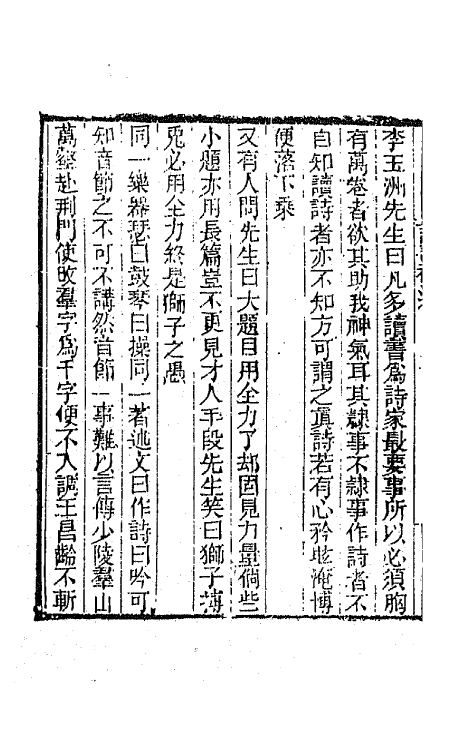 李玉洲先生曰凡多讀書爲詩家最要事所以必須胸
有萬卷者欲其助我神氣耳其隸事不隸事作詩者不
自知讀詩者亦不知方可謂之真詩若有心矜炫淹博
便落下乘
又有人問先生曰大題目用全力了却固見力量倘些
小題亦用長篇豈不更見才人手段先生笑曰獅子搏
兎必用全力終是獅子之愚
同一樂器瑟曰鼓琴曰操同一著述文曰作詩曰吟可
知音節之不可不講然音節一事難以言傳少陵羣山
萬壑赴荆門使改羣字爲千字便不入調王昌齡不斬